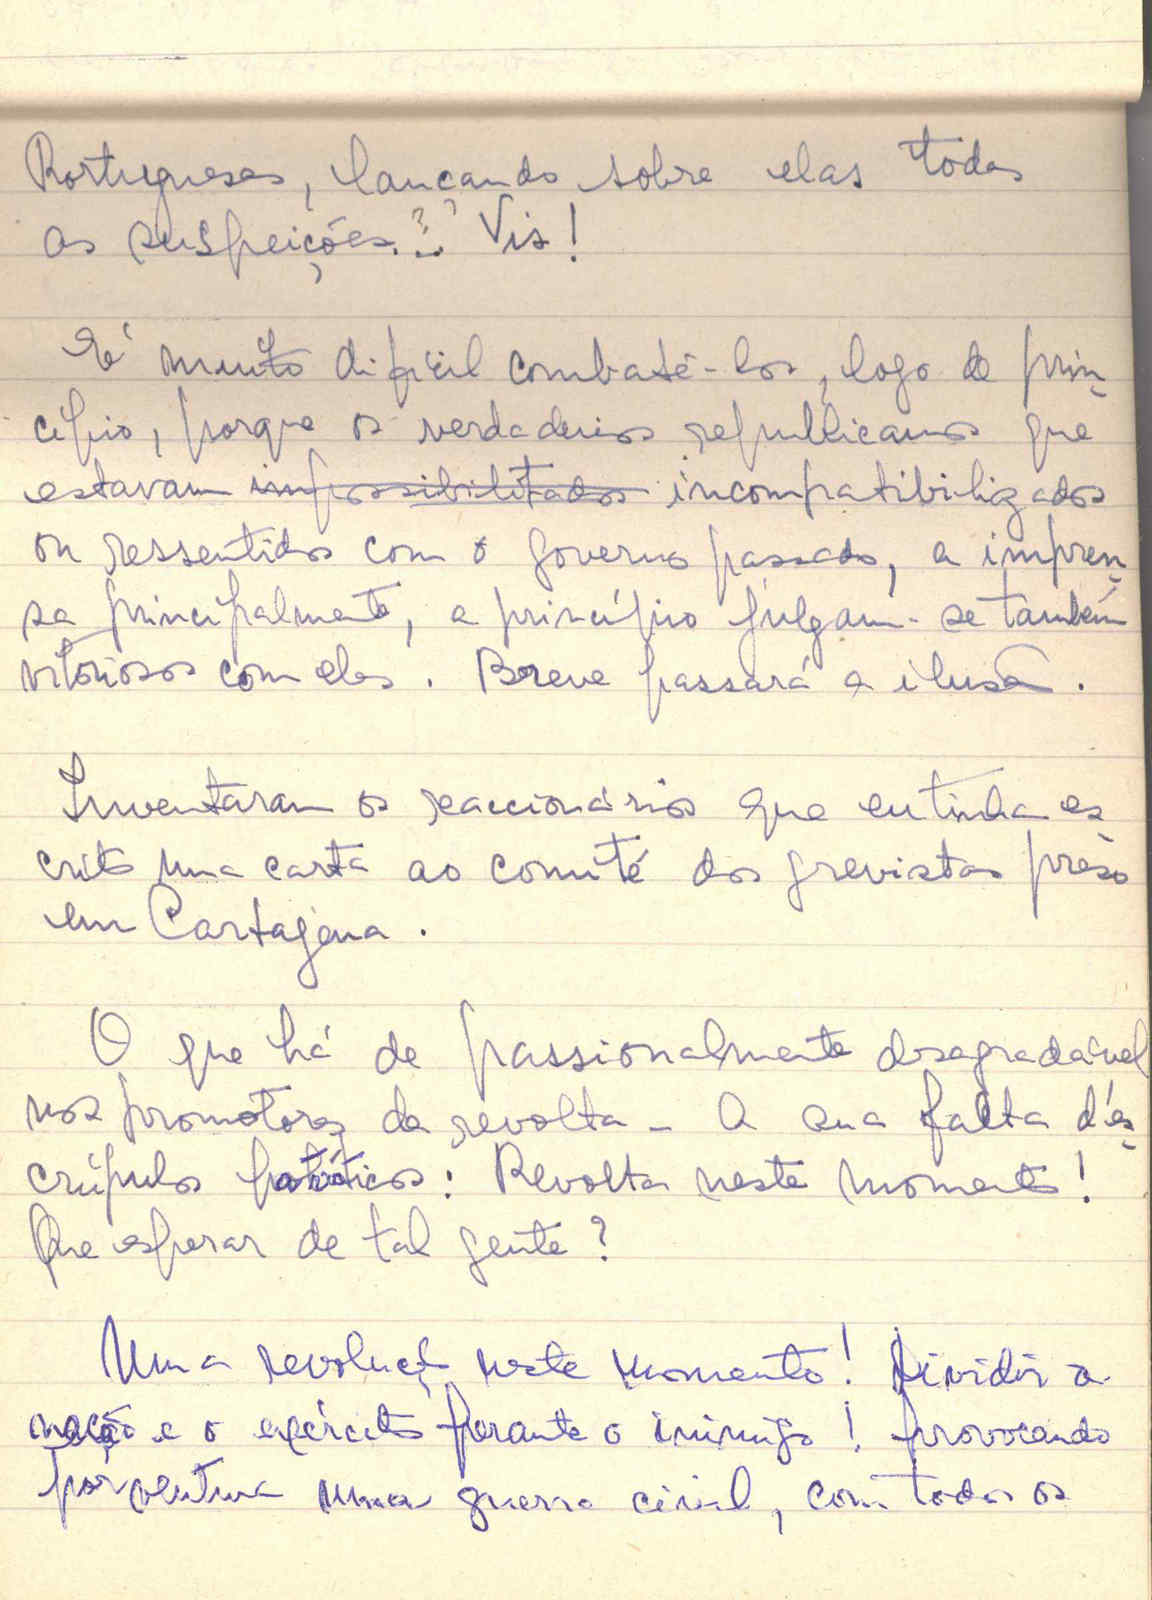 Portuguesas, lançando sobre elas todas
as suspeições...? Vis!
É muito difícil combatê-los, logo de prin-
cípio, porque os verdadeiros republicanos que
estavam impossibilitados incompatibilizados
ou ressentidos com o governo passado, a impren-
sa principalmente, a princípio julgam-se também
vitoriosos com eles. Breve passará a ilusão.
Inventaram os reaccionários que eu tinha es
crito uma carta ao comité dos grevistas preso
em Cartagena.
O que há de passionalmente desagradável
nos promotores da revolta - A sua falta d'es-
crúpulos patrióticos: Revolta neste momento!
Que esperar de tal gente?
Uma revolução neste momento! Dividir a
nação e o exército perante o inimigo! provocando
porventura uma guerra civil, com todos os